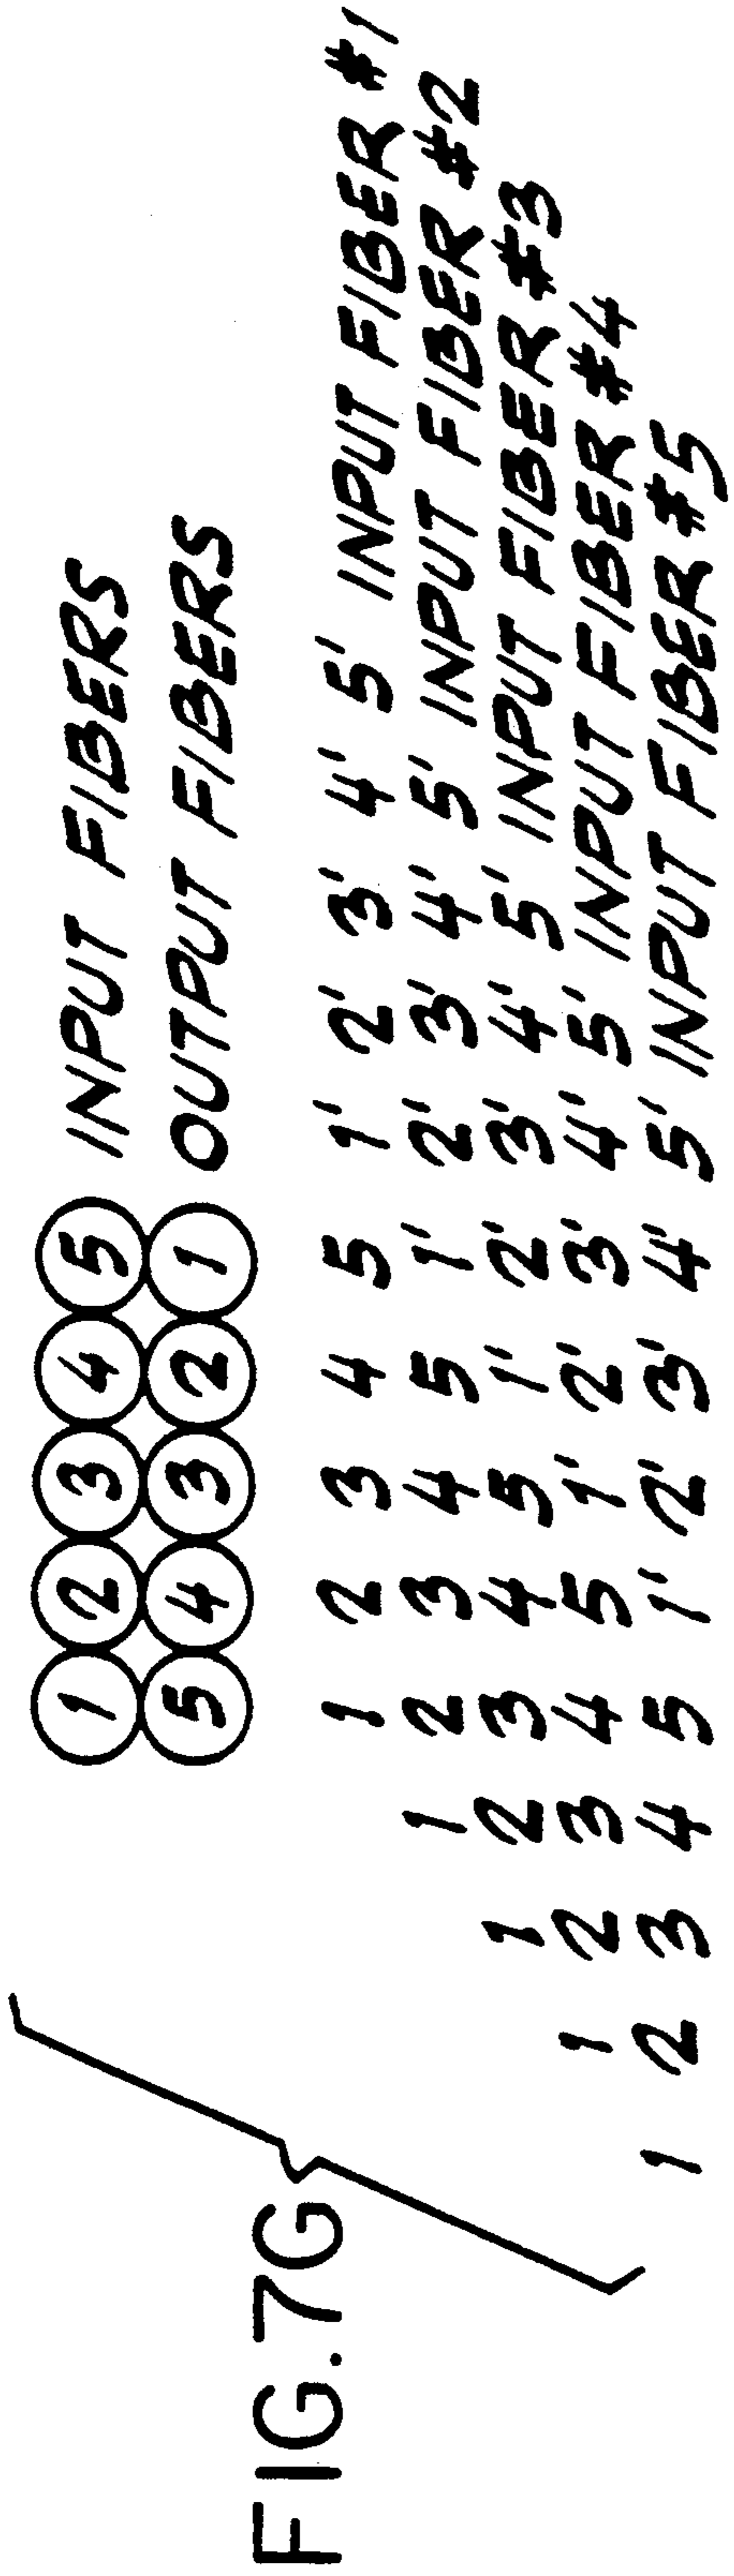 FIG. 7G
1 2 3 4 5 INPUT FIBERS
5 4 3 2 1 OUTPUT FIBERS
1 2 3 4 5 1' 2' 3' 4' 5' INPUT FIBER #1
1 2 3 4 5 1' 2' 3' 4' 5' INPUT FIBER #2
1 2 3 4 5 1' 2' 3' 4' 5' INPUT FIBER #3
1 2 3 4 5 1' 2' 3' 4' 5' INPUT FIBER #4
1 2 3 4 5 1' 2' 3' 4' 5' INPUT FIBER #5